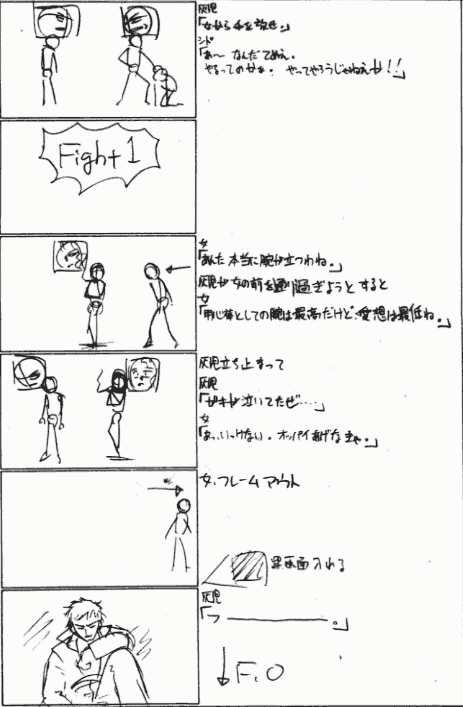 灰児
「女から手を放せ。」
シド
「あ～ なんだてめえ。
やるってのか。 やってやろうじゃねえか!!」
Fight 1
女
「あんた本当に腕が立つわね。」
灰児が女の前を通り過ぎようとすると
女
「用心棒としての腕は最高だけど、愛想は最低ね。」
灰児立ち止まって
灰児
「ガキが泣いてたぜ……」
女
「あっ、いっけない。オッパイあげなきゃ。」
女、フレームアウト
画面入れる
灰児
「フ ――――。」
F.O